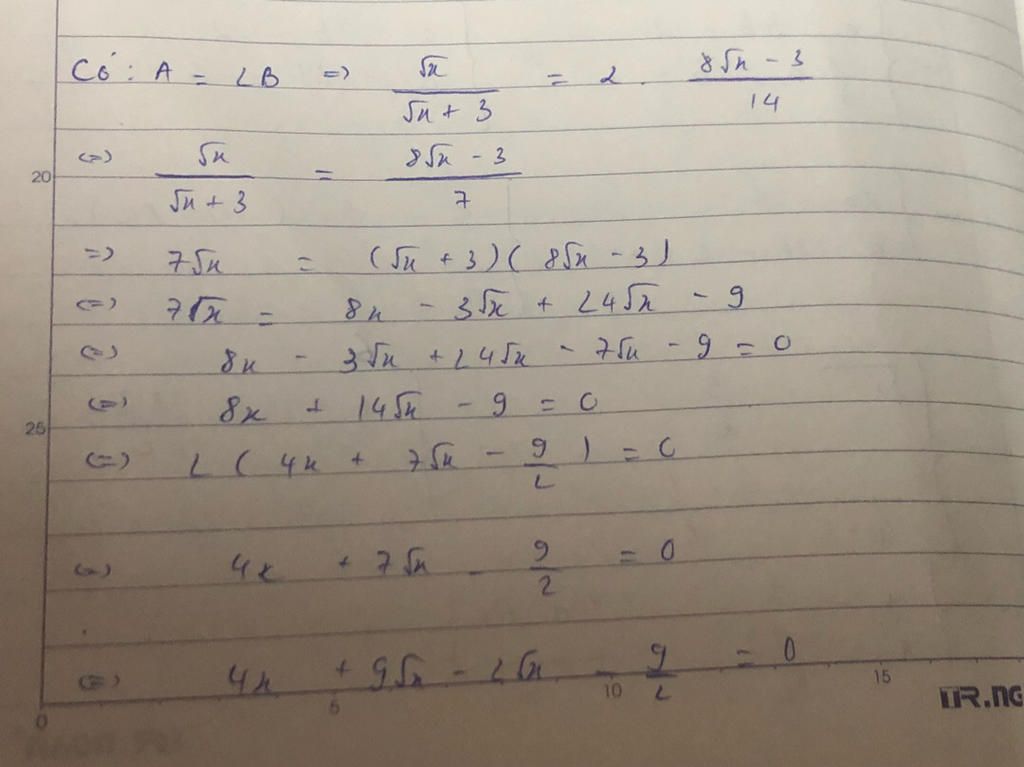 Có : A = 2B => √x / (√x + 3) = 2 . (8√x - 3) / 14
(=) √x / (√x + 3) = (8√x - 3) / 7
20
=> 7√x = (√x + 3)(8√x - 3)
(=) 7√x = 8x - 3√x + 24√x - 9
(=) 8x - 3√x + 24√x - 7√x - 9 = 0
(=) 8x + 14√x - 9 = 0
25
(=) 2 ( 4x + 7√x - 9/2 ) = 0
(=) 4x + 7√x - 9/2 = 0
(=) 4x + 9√x - 2√x - 9/2 = 0
0 5 10 15
TR.NG